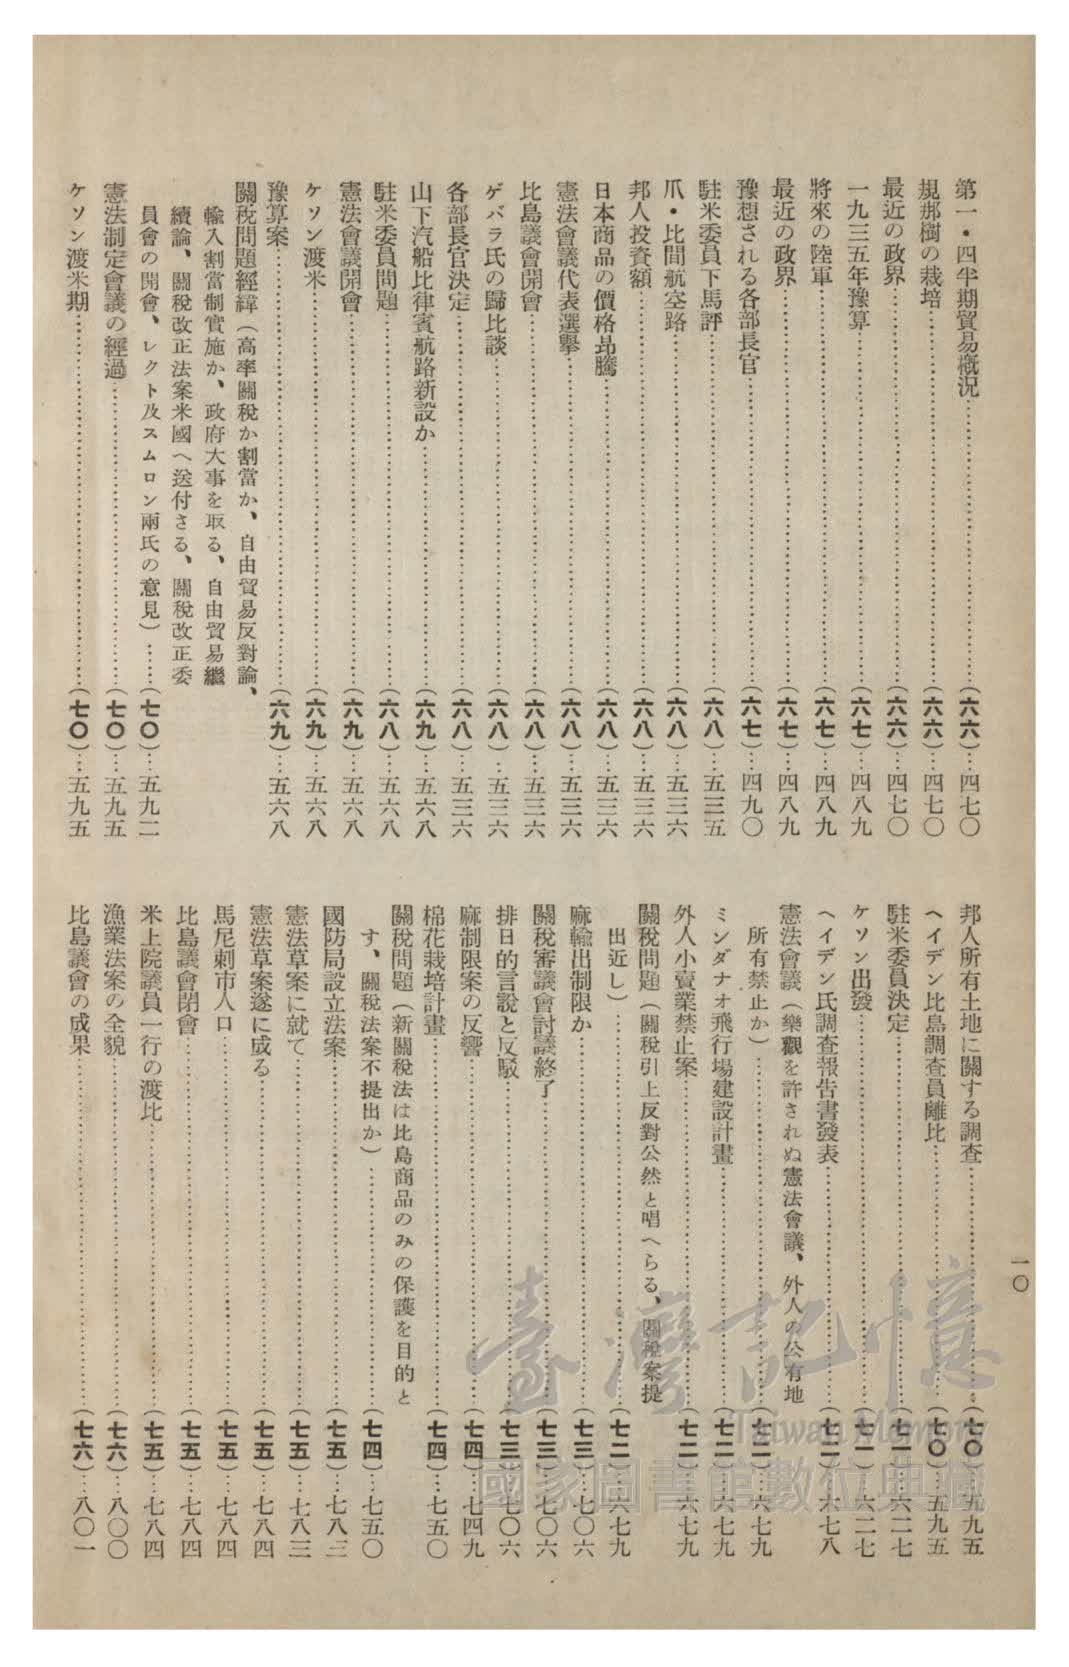 第一・四半期貿易概況…(六六)…四七〇
規那樹の栽培…(六六)…四七〇
最近の政界…(六六)…四七〇
一九三五年豫算…(六七)…四八九
將來の陸軍…(六七)…四八九
最近の政界…(六七)…四八九
豫想される各部長官…(六七)…四九〇
駐米委員下馬評…(六八)…五三五
爪・比間航空路…(六八)…五三六
邦人投資額…(六八)…五三六
日本商品の價格昂騰…(六八)…五三六
憲法會議代表選擧…(六八)…五三六
比島議會開會…(六八)…五三六
ゲバラ氏の歸比談…(六八)…五三六
各部長官決定…(六八)…五三六
山下汽船比律賓航路新設か…(六九)…五六八
駐米委員問題…(六八)…五六八
憲法會議開會…(六九)…五六八
ケソン渡米…(六九)…五六八
豫算案…(六九)…五六八
關稅問題經緯(高率關稅か割當か、自由貿易反對論、
輸入割當制實施か、政府大事を取る、自由貿易繼
續論、關稅改正法案米國へ送付さる、關稅改正委
員會の開會、レクト及スムロン兩氏の意見)…(七〇)…五九二
憲法制定會議の經過…(七〇)…五九五
ケソン渡米期…(七〇)…五九五
一〇
邦人所有土地に關する調查…(七〇)…五九五
ヘイデン比島調查員離比…(七〇)…五九五
駐米委員決定…(七一)…六二七
ケソン出發…(七一)…六二七
ヘイデン氏調查報告書發表…(七二)…六七八
憲法會議(樂觀を許されぬ憲法會議、外人の公有地
所有禁止か)…(七二)…六七九
ミンダナオ飛行場建設計畫…(七二)…六七九
外人小賣業禁止案…(七二)…六七九
關稅問題(關稅引上反對公然と唱へらる、關稅案提
出近し)…(七二)…六七九
麻輸出制限か…(七三)…七〇六
關稅審議會討議終了…(七三)…七〇六
排日的言說と反駁…(七三)…七〇六
麻制限案の反響…(七四)…七四九
棉花栽培計畫…(七四)…七五〇
關稅問題(新關稅法は比島商品のみの保護を目的と
す、關稅法案不提出か)…(七四)…七五〇
國防局設立法案…(七五)…七八三
憲法草案に就て…(七五)…七八三
憲法草案遂に成る…(七五)…七八四
馬尼剌市人口…(七五)…七八四
比島議會閉會…(七五)…七八四
米上院議員一行の渡比…(七五)…七八四
漁業法案の全貌…(七六)…八〇〇
比島議會の成果…(七六)…八〇一
臺灣記憶
Taiwan Memory
國家圖書館數位典藏